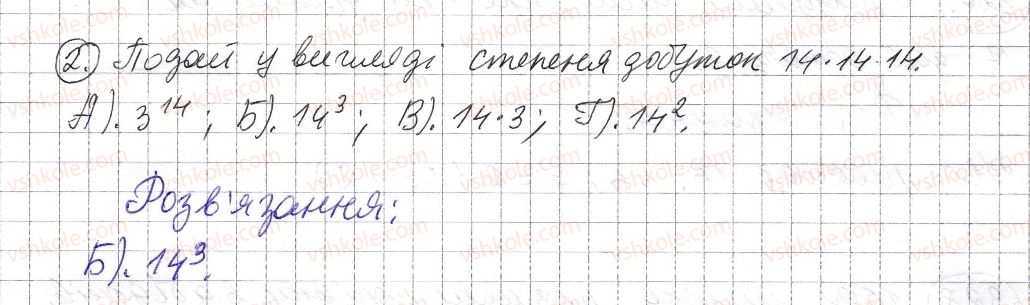 2. Подай у вигляді степеня добуток 14·14·14.
А). 3^14; Б). 14^3; В). 14·3; Г). 14^2.
Розв'язання:
Б). 14^3.